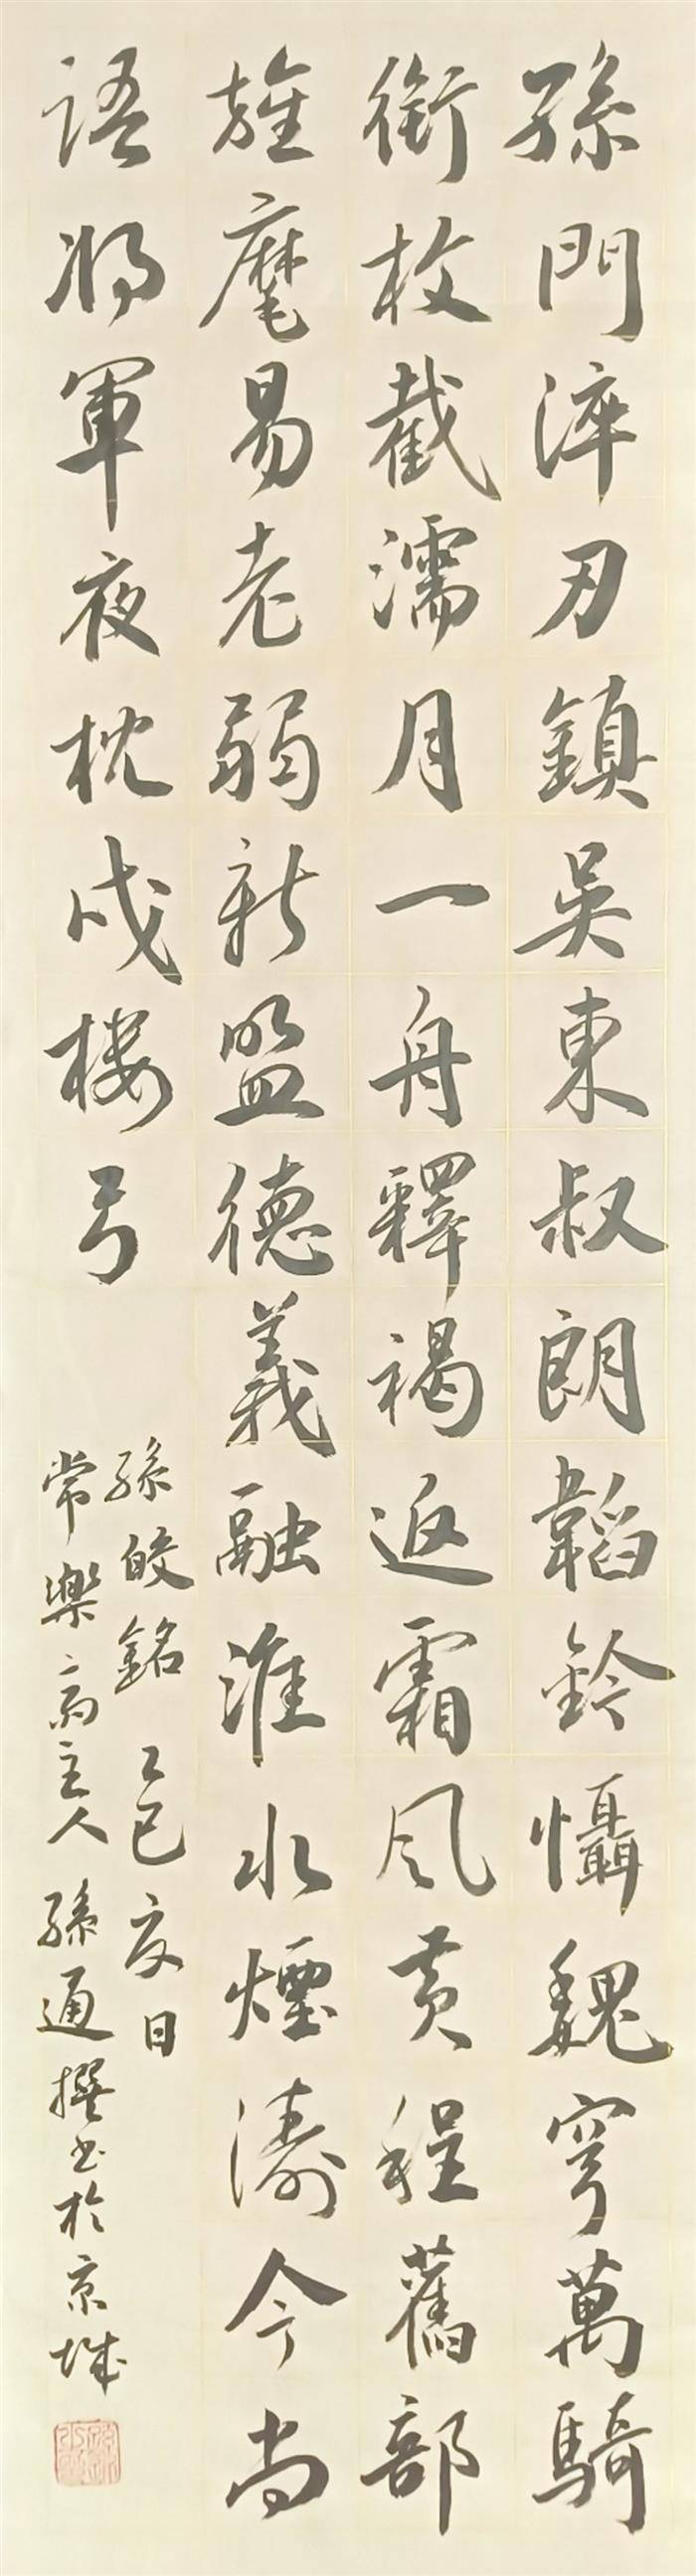 孫門淬刃鎮吳東叔朗韜鈐懾魏穹萬騎
銜枚截濡月一舟釋褐返霜风黄程舊部
旌麾易老弱新盟德義融淮水煙濤今尚
語将軍夜枕戍楼弓
孫皎銘 乙巳夏日
常樂斋主人孫通撰书於京城